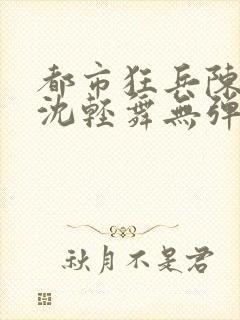 都市狂兵陳
沈輕舞無彈
秋月不是君